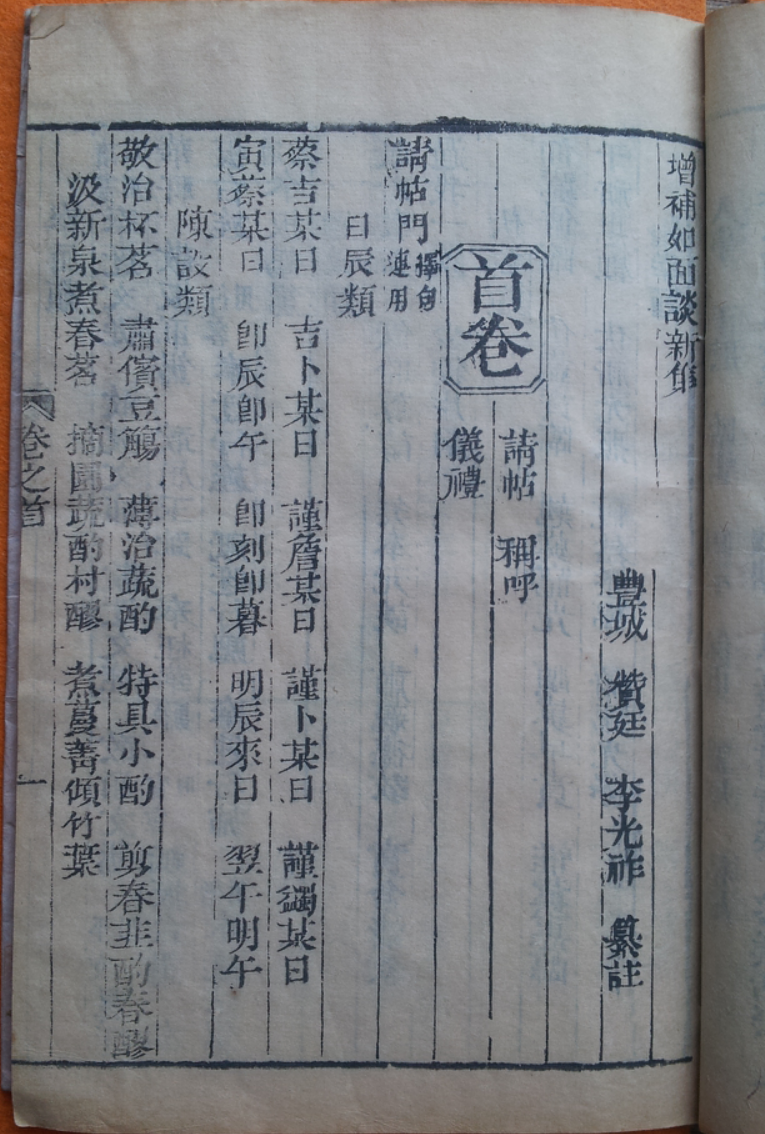 增補如面談新集
豐城 贊廷 李光祚 纂註
首卷
請帖 稱呼
儀禮
請帖門 擇句連用
日辰類
蔡吉某日 吉卜某日 謹詹某日 謹卜某日 謹蠲某日
寅蔡某日 卽辰卽午 卽刻卽暮 明辰來日 翌午明午
陳設類
敬治杯茗 肅儐豆觴 薄治蔬酌 特具小酌 剪春韭酌春醪
汲新泉煮春茗 摘園蔬酌村醪 煮蔓菁傾竹葉
卷之首
一